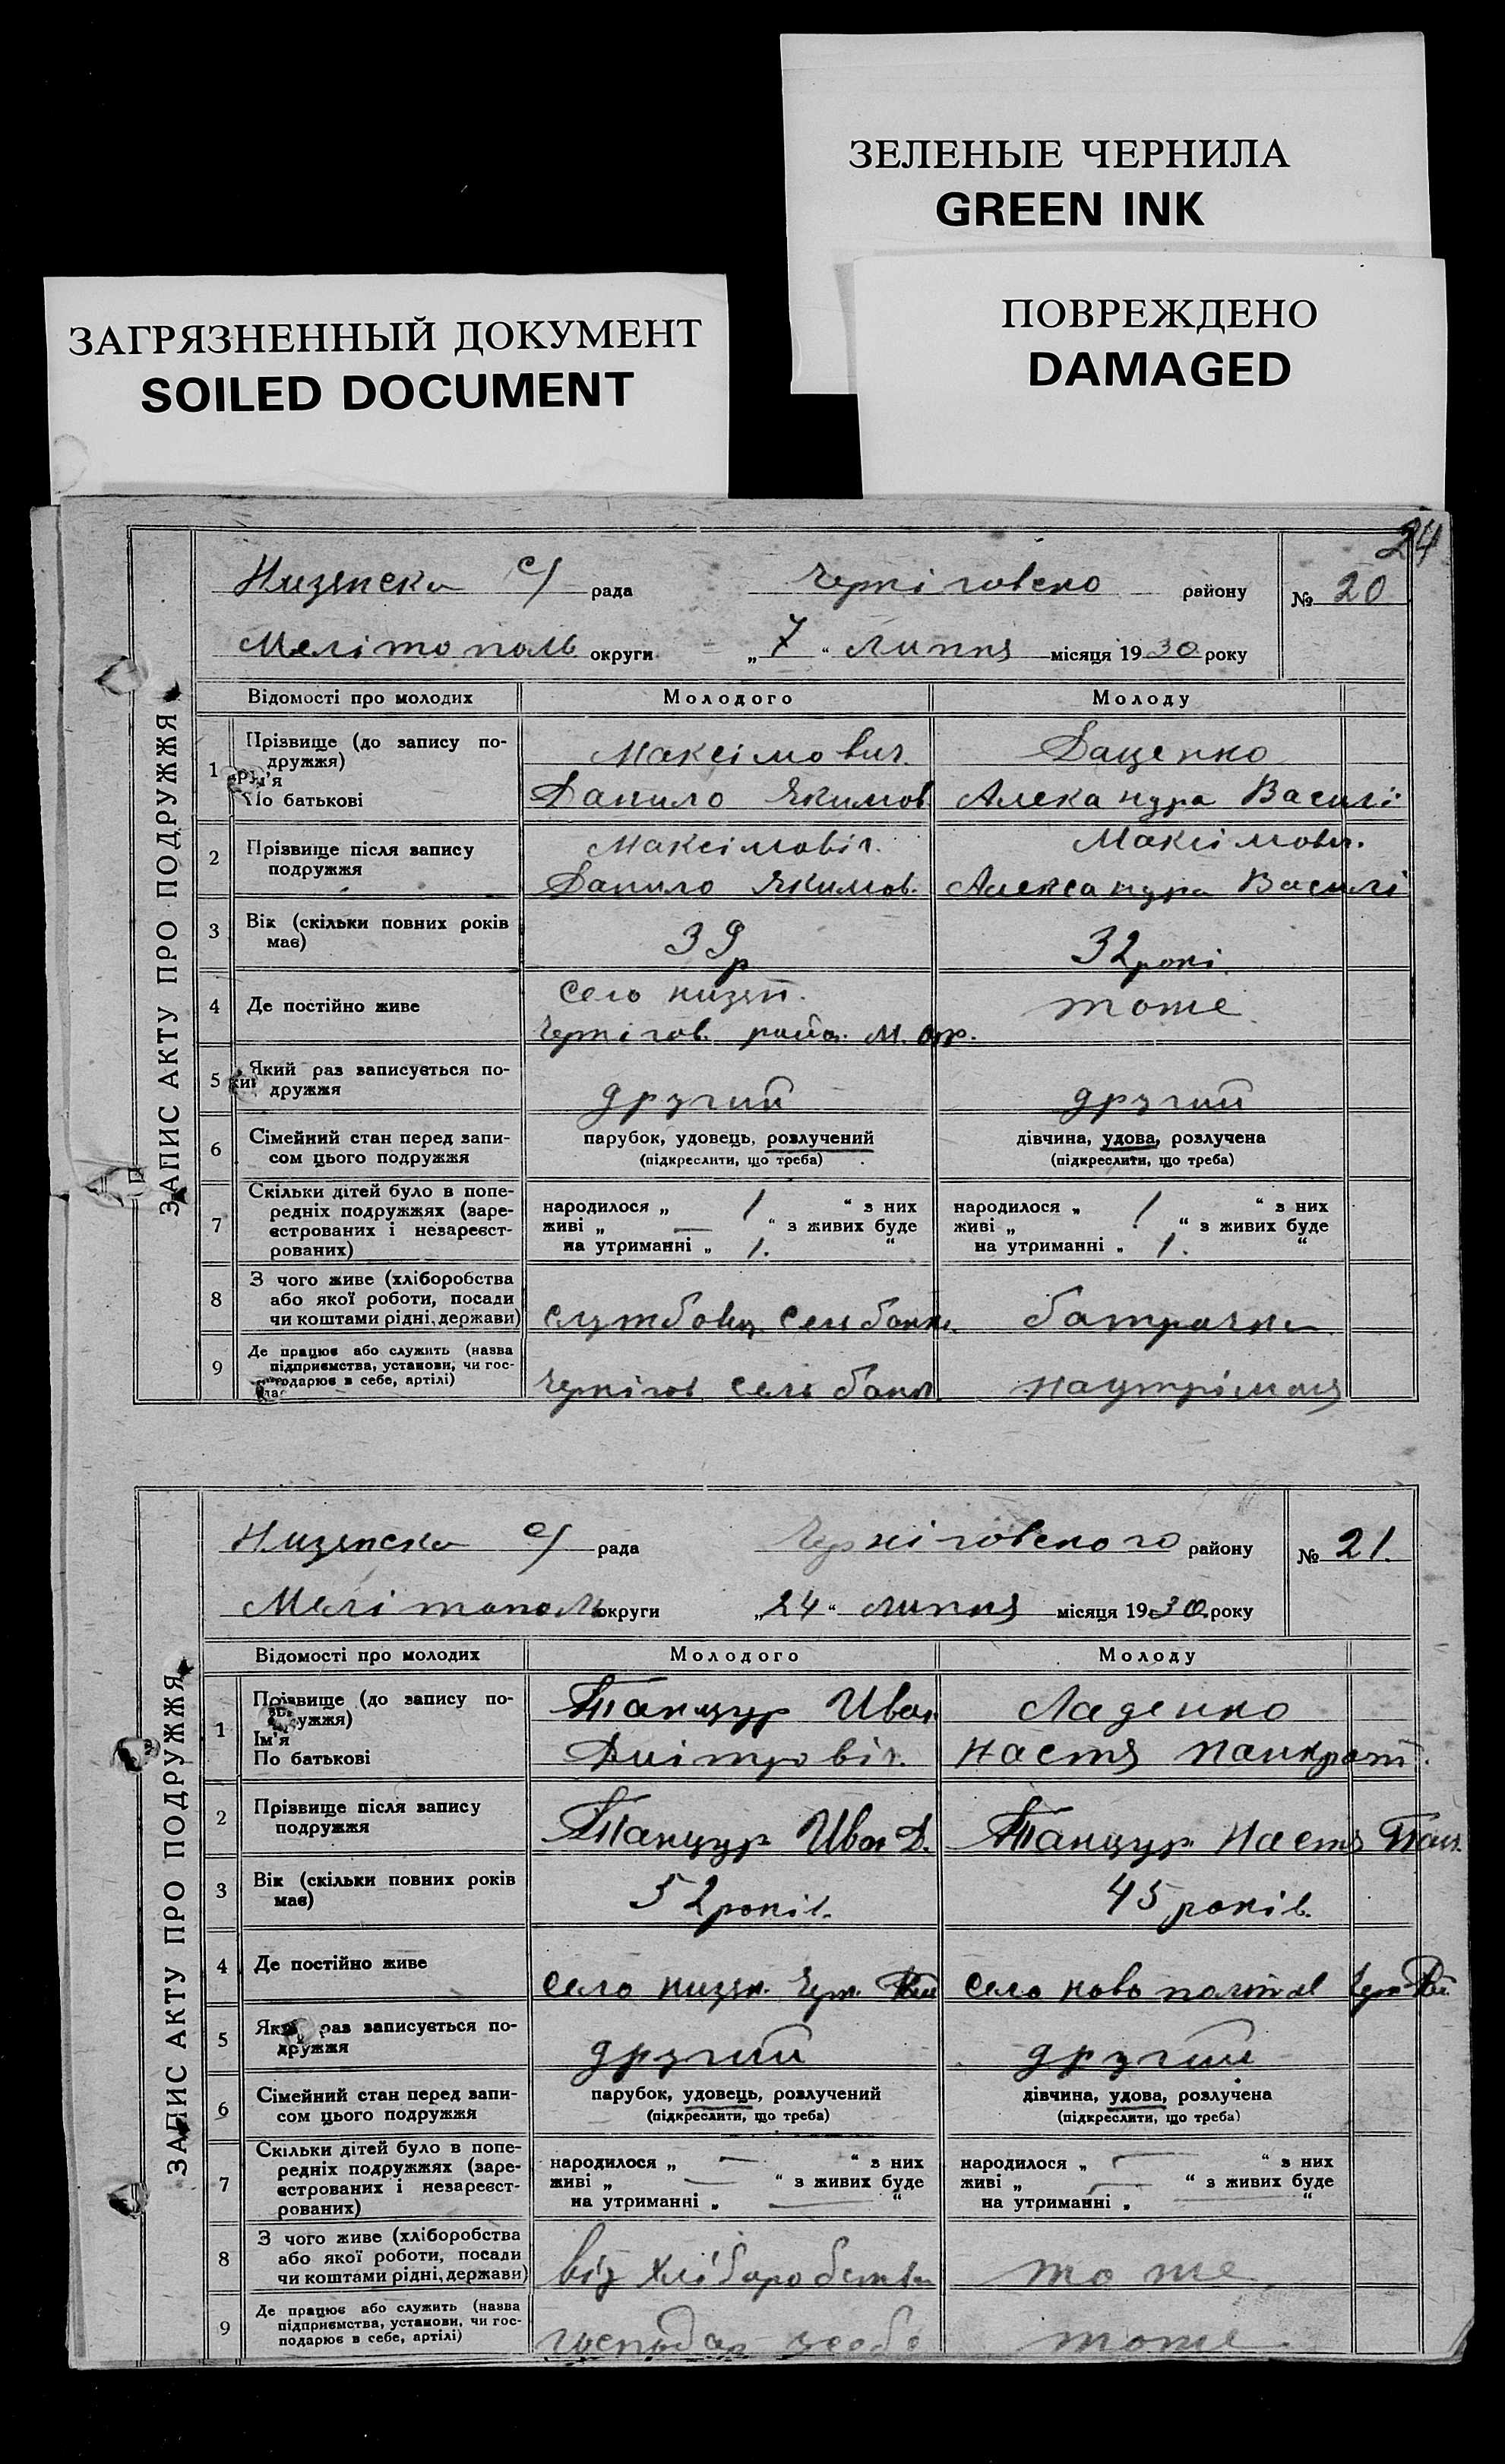 ЗЕЛЕНЫЕ ЧЕРНИЛА
GREEN INK
ЗАГРЯЗНЕННЫЙ ДОКУМЕНТ
SOILED DOCUMENT
ПОВРЕЖДЕНО
DAMAGED
24
ЗАПИС АКТУ ПРО ПОДРУЖЖЯ
Низянска с/ рада Чернiговско району № 20
Мелiтополь округи „7“ липня місяця 1930 року
Відомості про молодих Молодого Молоду
1 Прізвище (до запису по-
дружжя) Максiмович. Даценко
м'я
По батькові Данило Якимов Алекандра Василi
2 Прізвище після запису Максiмовiч. Максiмович.
подружжя Данило Якимов. Александра Василi
3 Вік (скільки повних років
має) 39р 32 рокi.
4 Де постійно живе Село низян. тоже
Чернiгов. район. М. окр.
5 Який раз записується по-
дружжя другий другий
6 Сімейний стан перед запи- парубок, удовець, розлучений дівчина, удова, розлучена
сом цього подружжя (підкреслити, що треба) (підкреслити, що треба)
7 Скільки дітей було в попе-
редніх подружжях (заре- народилося „ 1 “ з них народилося „ 1 “ з них
єстрованих і незареєст- живі „ — “ з живих буде живі „ “ з живих буде
рованих) на утриманні „ 1. “ на утриманні „ 1. “
8 З чого живе (хліборобства
або якої роботи, посади
чи коштами рідні, держави) службовц. Сельбанк. батрачка
9 Де працює або служить (назва
підприємства, установи, чи гос-
подарює в себе, артілі) Чернiгов Сельбанк
ЗАПИС АКТУ ПРО ПОДРУЖЖЯ
Низянска с/ рада Чернiговского району № 21.
Мелiтополь округи „24“ липня місяця 1930 року
Відомості про молодих Молодого Молоду
1 Прізвище (до запису по- Танцур Иван Ладенко
ужжя)
Ім'я
По батькові Дмiтровiч. Настя Панкрат.
2 Прізвище після запису
подружжя Танцур Иван Д. Танцур Настя Пан.
3 Вік (скільки повних років
має) 52 рокiв. 45 рокiв.
4 Де постійно живе Село низян. Черн. Рай Село ново полтав Черн Рай
5 Який раз записується по-
дружжя другий другий
6 Сімейний стан перед запи- парубок, удовець, розлучений дівчина, удова, розлучена
сом цього подружжя (підкреслити, що треба) (підкреслити, що треба)
7 Скільки дітей було в попе-
редніх подружжях (заре- народилося „ — “ з них народилося „ — “ з них
єстрованих і незареєст- живі „ — “ з живих буде живі „ — “ з живих буде
рованих) на утриманні „ — “ на утриманні „ — “
8 З чого живе (хліборобства
або якої роботи, посади
чи коштами рідні, держави) вiд хлiборобства тоже
9 Де працює або служить (назва
підприємства, установи, чи гос-
подарює в себе, артілі) господар у себе тоже